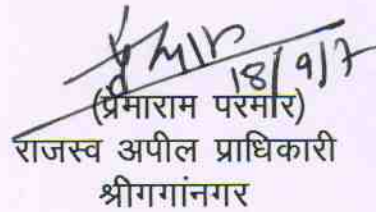 18/9/7
(प्रेमाराम परमार)
राजस्व अपील प्राधिकारी
श्रीगगांनगर